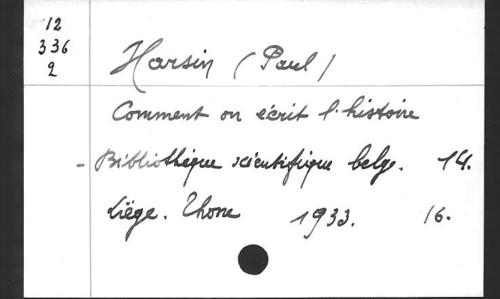 12
336
2
Harsin (Paul)
Comment on écrit l'histoire
- Bibliothèque scientifique belge. 14.
Liège. Thone 1933. 16.